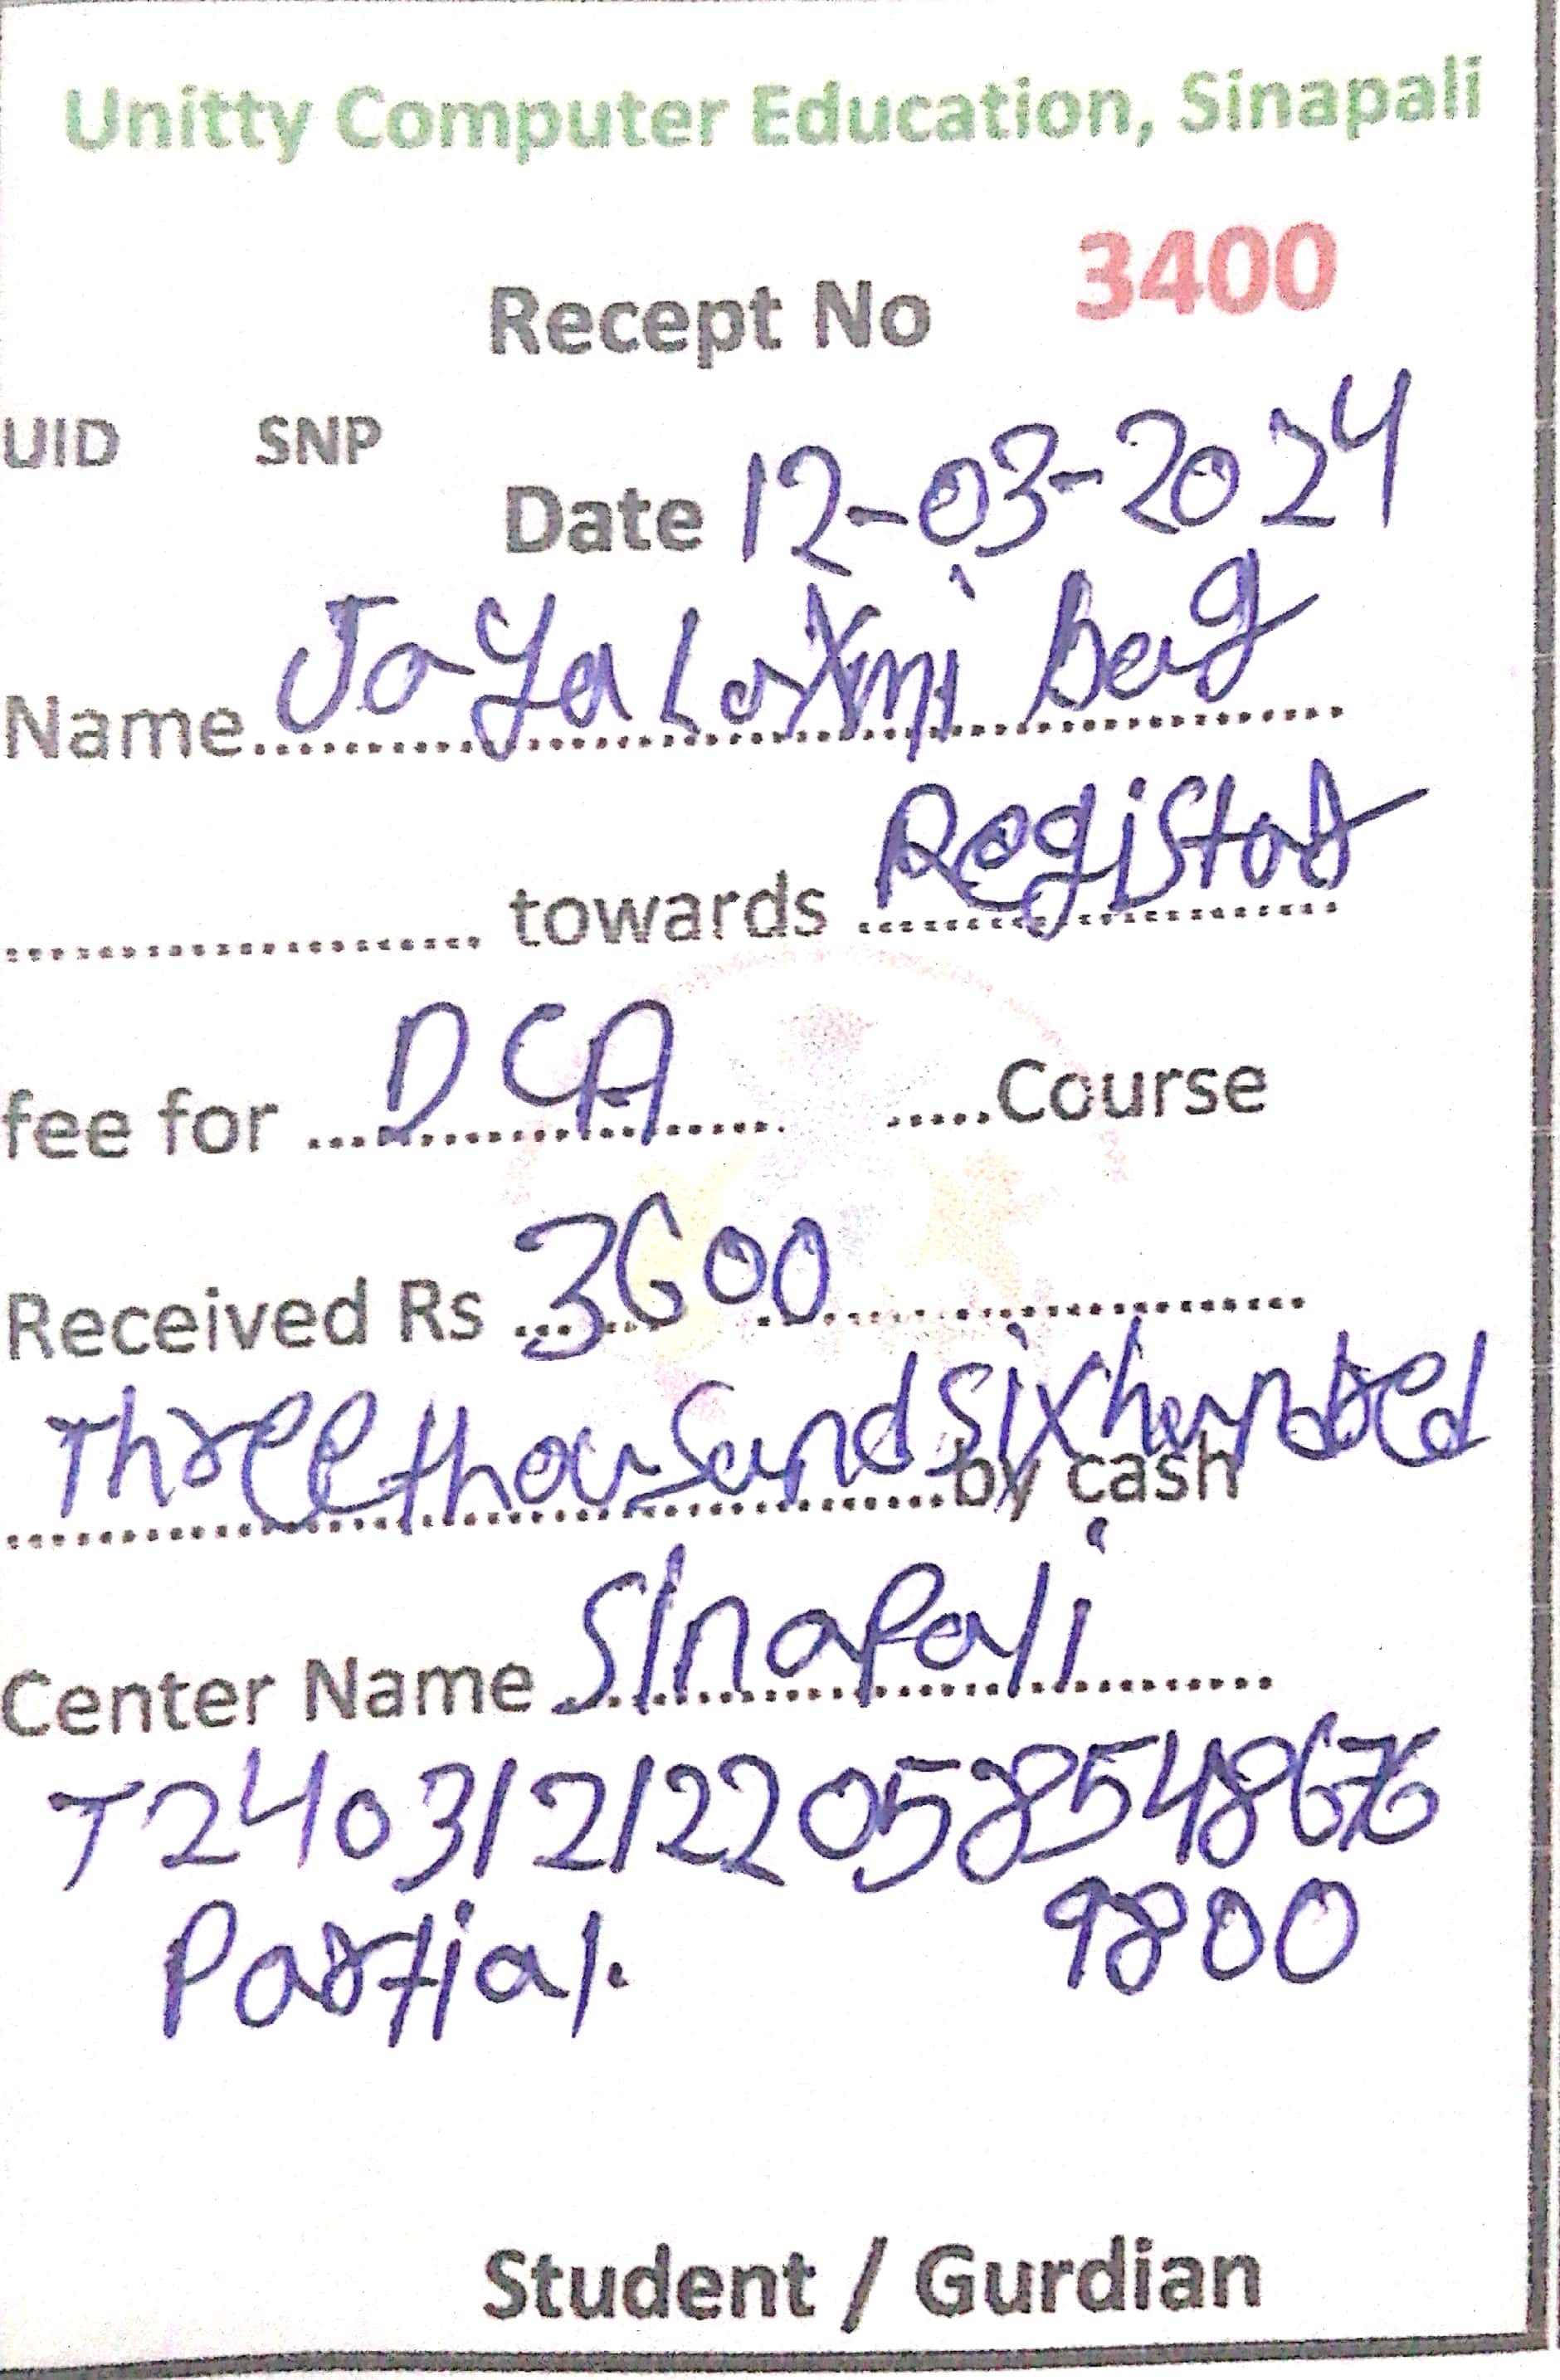 Unitty Computer Education, Sinapali
Recept No 3400
UID SNP
Date 12-03-2024
Name Jaya Laxmi bag
towards Registor
fee for DCA Course
Received Rs 3600
Three thousand six hundred by cash
Center Name Sinapali
T2403121220585548676
Partial. 9800
Student / Gurdian